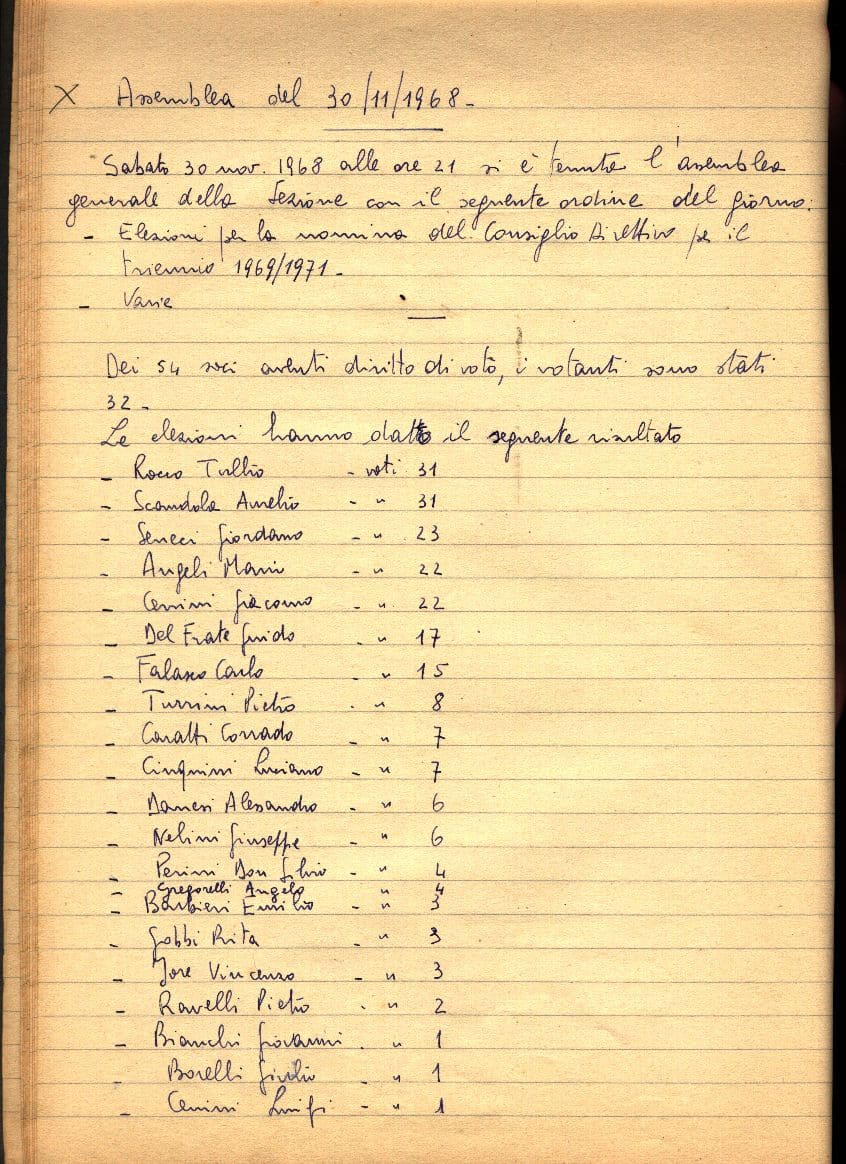 X Assemblea del 30/11/1968-
Sabato 30 nov. 1968 alle ore 21 si è tenuta l'assemblea
generale della Sezione con il seguente ordine del giorno:
- Elezioni per la nomina del Consiglio Direttivo per il
triennio 1969/1971-
- Varie
Dei 54 soci aventi diritto di voto, i votanti sono stati
32-
Le elezioni hanno dato il seguente risultato
- Rocco Tullio - voti 31
- Scandola Aurelio - " 31
- Seneci Giordano - " 23
- Angeli Mario - " 22
- Cenini Giacomo - " 22
- Del Frate Guido - " 17
- Falasco Carlo - " 15
- Turrini Pietro - " 8
- Caratti Corrado - " 7
- Cinquini Luciano - " 7
- Danesi Alessandro - " 6
- Nelini Giuseppe - " 6
- Perini Don Silvio - " 4
- Gregorelli Angelo " 4
- Barbieri Emilio - " 3
- Gobbi Rita - " 3
- Jore Vincenzo - " 3
- Ravelli Pietro - " 2
- Bianchi Giovanni - " 1
- Borelli Giulio - " 1
- Cenini Luigi - " 1